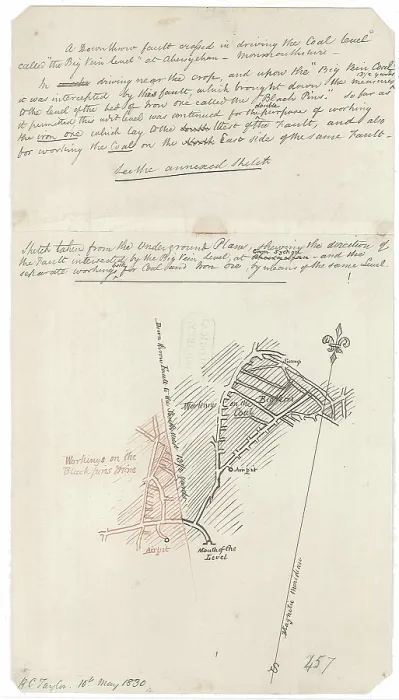 A Downthrow fault crossed in driving the Coal level
called the "Big Vein Level" at Abersychan - Monmouthshire -
In driving near the crop, and upon the "Big Vein Coal"
it was intercepted by this fault, which brought down the measures
to the level of the bed of Iron ore called the "Black Pins." so far as
it permitted this adit level was continued for the double purpose of working
the iron ore which lay to the West of the Fault, and also
for working the Coal on the East side of the same Fault -
See the annexed Sketch
Sketch taken from the Underground Plans, shewing the direction of
the Fault intersected by the Big Vein Level, at - and the
separate workings both for Coal and Iron Ore, by means of the same Level.
Down throw Fault to the
yards
Workings on the Coal
Big Vein
Airpit
Workings on the
Black pins Mine
Airpit
Mouth of the
Level
Magnetic Meridian
S
R C Taylor. 10th May 1830
457